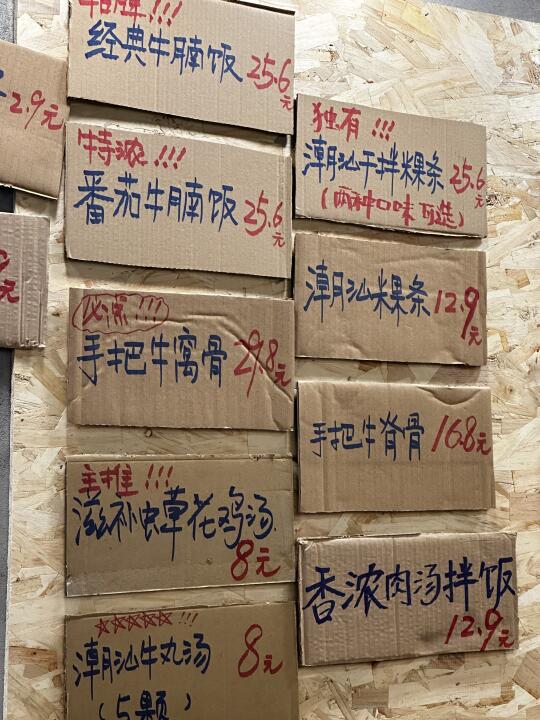 招牌!!!
经典牛腩饭 25.6元
特浓!!!
番茄牛腩饭 25.6元
必点!!!
手把牛窝骨 29.8元
主推!!!
滋补虫草花鸡汤
8元
☆☆☆☆☆!!!
潮汕牛丸汤 8元
(5颗)
独有!!!
潮汕干拌粿条 25.6元
(两种口味可选)
潮汕粿条 12.9元
手把牛脊骨 16.8元
香浓肉汤拌饭
12.9元
2.9元
元